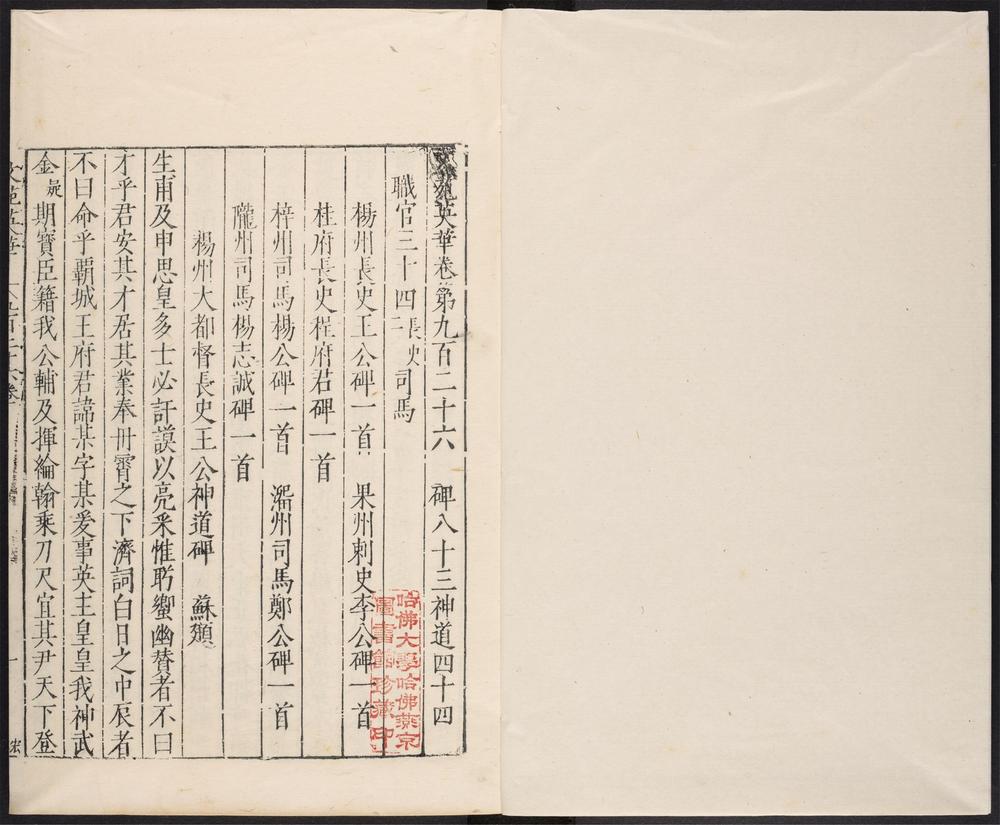 文苑英華卷第九百二十六 碑八十三神道四十四
職官三十四 長史 司馬
楊州長史王公碑一首 果州刺史李公碑一首
桂府長史程府君碑一首
梓州司馬楊公碑一首 淄州司馬鄭公碑一首
隴州司馬楊志誠碑一首
楊州大都督長史王公神道碑 蘇頲
生甫及申思皇多士必訏謨以亮采惟肹蠁幽贊者不曰
才乎君安其才居其業奉丹霄之下濟詞白日之中辰者
不曰命乎霸城王府君諱某字某爰事英主皇皇我神武
金 是 期寶臣籍我公輔及揮綸翰乘刀尺宜其尹天下登
文苑英華
哈佛大學哈佛燕京圖書館珍藏印